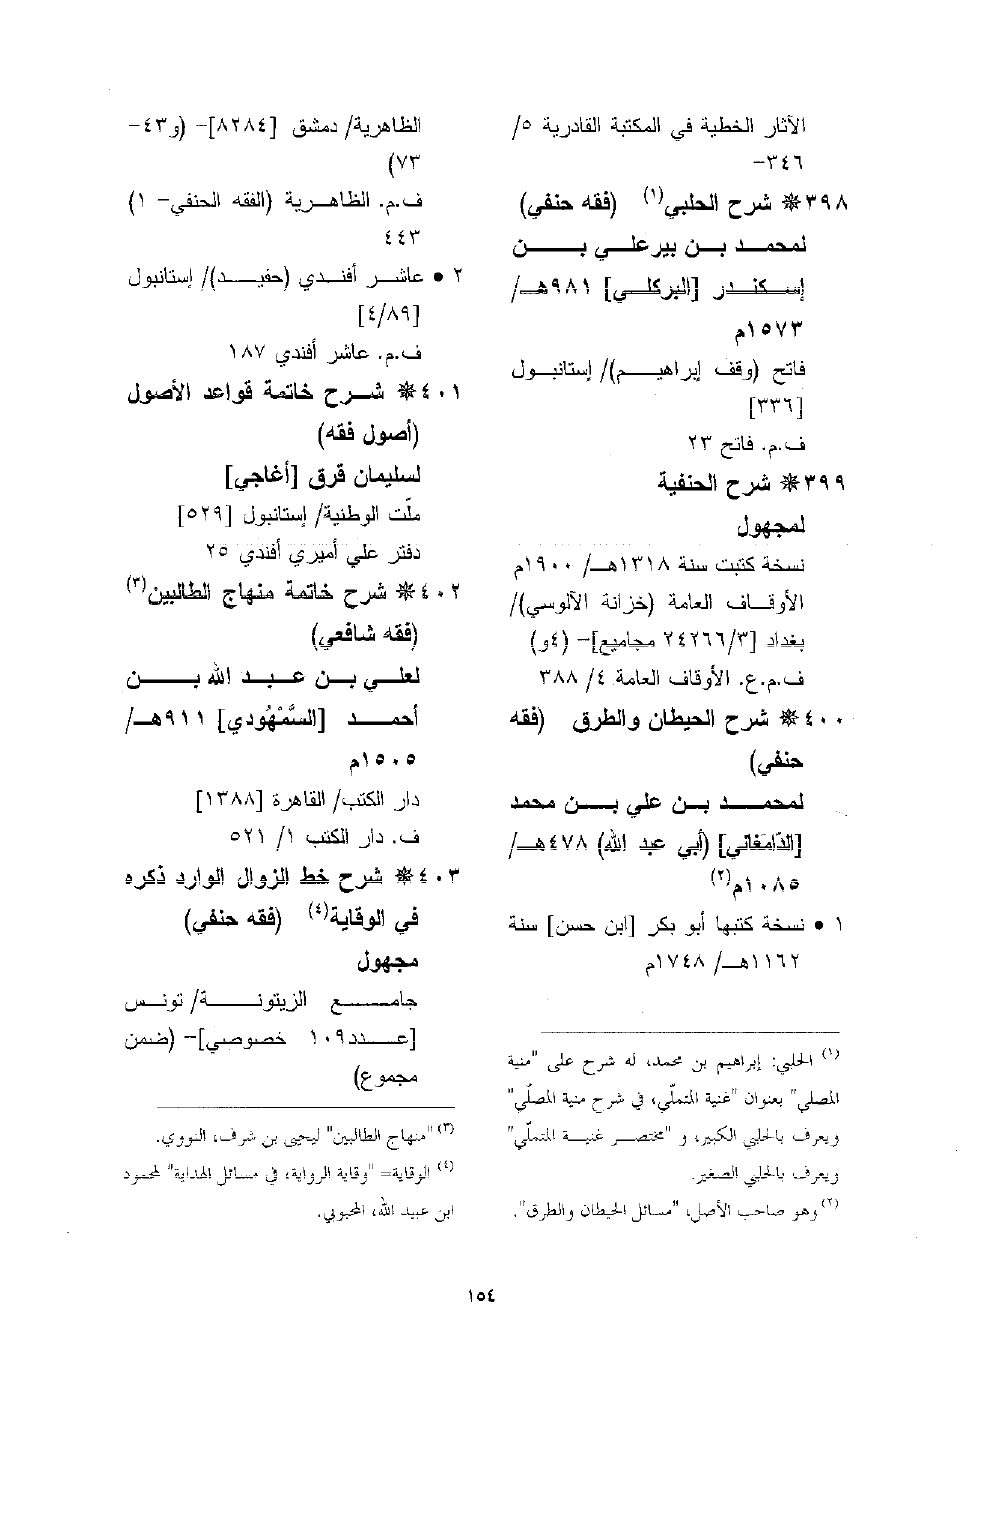 الآثار الخطية في المكتبة القادرية ٥/
٣٤٦–
٣٩٨* شرح الحلبي(١) (فقه حنفي)
لمحمد بن بيرعلي بن
إسكندر [البركلي] ٩٨١هـ/
١٥٧٣م
فاتح (وقف إبراهيم)/ إستانبول
[٣٣٦]
ف.م. فاتح ٢٣
٣٩٩* شرح الحنفية
لمجهول
نسخة كتبت سنة ١٣١٨هـ/ ١٩٠٠م
الأوقاف العامة (خزانة الآلوسي)/
بغداد [٢٤٢٦٦/٣ مجاميع]– (٤و)
ف.م.ع. الأوقاف العامة ٤/ ٣٨٨
٤٠٠* شرح الحيطان والطرق (فقه
حنفي)
لمحمد بن علي بن محمد
[الدّامَغاني] (أبي عبد الله) ٤٧٨هـ/
١٠٨٥م(٢)
١ ● نسخة كتبها أبو بكر [ابن حسن] سنة
١١٦٢هـ/ ١٧٤٨م
(١) الحلبي: إبراهيم بن محمد، له شرح على "منية
المصلي" بعنوان "غنية المتملّي، في شرح منية المصلّي"
ويعرف بالحلبي الكبير، و "مختصر غنية المتملّي"
ويعرف بالحلبي الصغير.
(٢) وهو صاحب الأصل، "مسائل الحيطان والطرق".
الظاهرية/ دمشق [٨٢٨٤]– (و٤٣–
٧٣)
ف.م. الظاهرية (الفقه الحنفي– ١)
٤٤٣
٢ ● عاشر أفندي (حفيد)/ إستانبول
[٤/٨٩]
ف.م. عاشر أفندي ١٨٧
٤٠١* شرح خاتمة قواعد الأصول
(أصول فقه)
لسليمان قرق [أغاجي]
ملّت الوطنية/ إستانبول [٥٢٩]
دفتر علي أميري أفندي ٢٥
٤٠٢* شرح خاتمة منهاج الطالبين(٣)
(فقه شافعي)
لعلي بن عبد الله بن
أحمد [السَّمْهُودي] ٩١١هـ/
١٥٠٥م
دار الكتب/ القاهرة [١٣٨٨]
ف. دار الكتب ١/ ٥٢١
٤٠٣* شرح خط الزوال الوارد ذكره
في الوقاية(٤) (فقه حنفي)
مجهول
جامع الزيتونة/ تونس
[عدد١٠٩ خصوصي]– (ضمن
مجموع)
(٣) "منهاج الطالبين" ليحيى بن شرف، النووي.
(٤) الوقاية= "وقاية الرواية، في مسائل الهداية" لمحمود
ابن عبيد الله، المحبوبي.
١٥٤